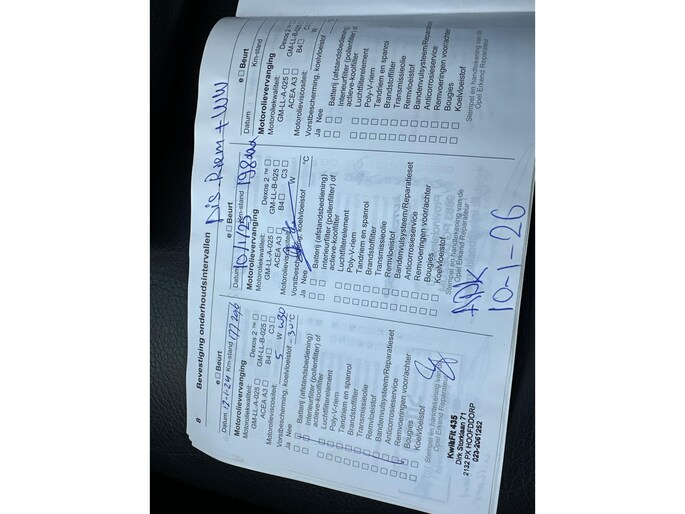 8 Bevestiging onderhoudsintervallen
e □ Beurt
Datum 12-1-24 Km-stand 177296
Motorolievervanging
Motoroliekwaliteit: Dexos 2 ™ □
GM-LL-A-025 □ GM-LL-B-025 □
ACEA A3 □ B4 □ C3 □
Motorolieviscositeit: 5 W w30
Vorstbescherming, koelvloeistof -30 °C
Ja Nee
□ □ Batterij (afstandsbediening)
□ □ Interieurfilter (pollenfilter) of
actieve-koolfilter
□ □ Luchtfilterelement
□ □ Poly-V-riem
□ □ Tandriem en spanrol
□ □ Brandstoffilter
□ □ Transmissieolie
□ □ Remvloeistof
□ □ Bandenvulsysteem/Reparatieset
□ □ Anticorrosieservice
□ □ Remvoeringen voor/achter
□ □ Bougies
□ □ Koelvloeistof
Stempel en handtekening van de
Opel Erkend Reparateur
KwikFit 435
Dirk Storklaan 71
2132 PX HOOFDDORP
023-2061252
Dis-Riem + WW
e □ Beurt
Datum 10/1/25 Km-stand
Motorolievervanging
Motoroliekwaliteit: Dexos 2 ™ □
GM-LL-A-025 □ GM-LL-B-025 □
ACEA A3 □ B4 □ C3 □
Motorolieviscositeit: W
Vorstbescherming, koelvloeistof °C
Ja Nee
□ □ Batterij (afstandsbediening)
□ □ Interieurfilter (pollenfilter) of
actieve-koolfilter
□ □ Luchtfilterelement
□ □ Poly-V-riem
□ □ Tandriem en spanrol
□ □ Brandstoffilter
□ □ Transmissieolie
□ □ Remvloeistof
□ □ Bandenvulsysteem/Reparatieset
□ □ Anticorrosieservice
□ □ Remvoeringen voor/achter
□ □ Bougies
□ □ Koelvloeistof
Stempel en handtekening van de
Opel Erkend Reparateur
APK
10-1-26
e □ Beurt
Datum Km-stand
Motorolievervanging
Motoroliekwaliteit: Dexos 2
GM-LL-A-025 □ GM-LL-B-025
ACEA A3 □ B4 □
Motorolieviscositeit: W
Vorstbescherming, koelvloeistof
Ja Nee
□ □ Batterij (afstandsbediening)
□ □ Interieurfilter (pollenfilter) of
actieve-koolfilter
□ □ Luchtfilterelement
□ □ Poly-V-riem
□ □ Tandriem en spanrol
□ □ Brandstoffilter
□ □ Transmissieolie
□ □ Remvloeistof
□ □ Bandenvulsysteem/Reparaties
□ □ Anticorrosieservice
□ □ Remvoeringen voor/achter
□ □ Bougies
□ □ Koelvloeistof
Stempel en handtekening van de
Opel Erkend Reparateur